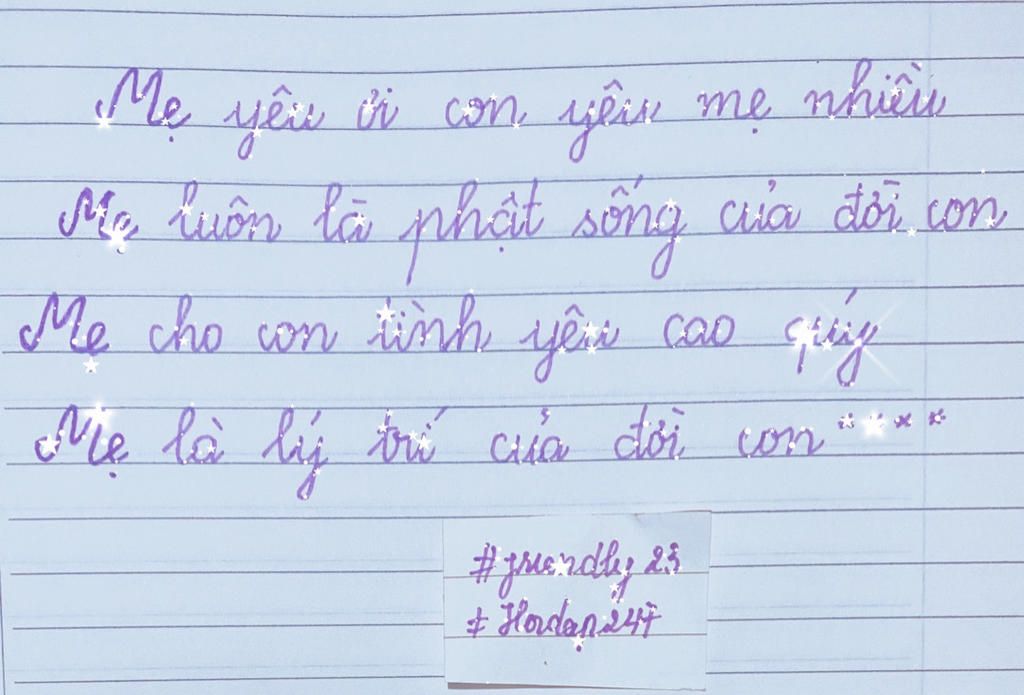 Mẹ yêu ơi con yêu mẹ nhiều
Mẹ luôn là phật sống của đời con
Mẹ cho con tình yêu cao quý
Mẹ là lý trí của đời con ****
#friendly23
#Hordan247